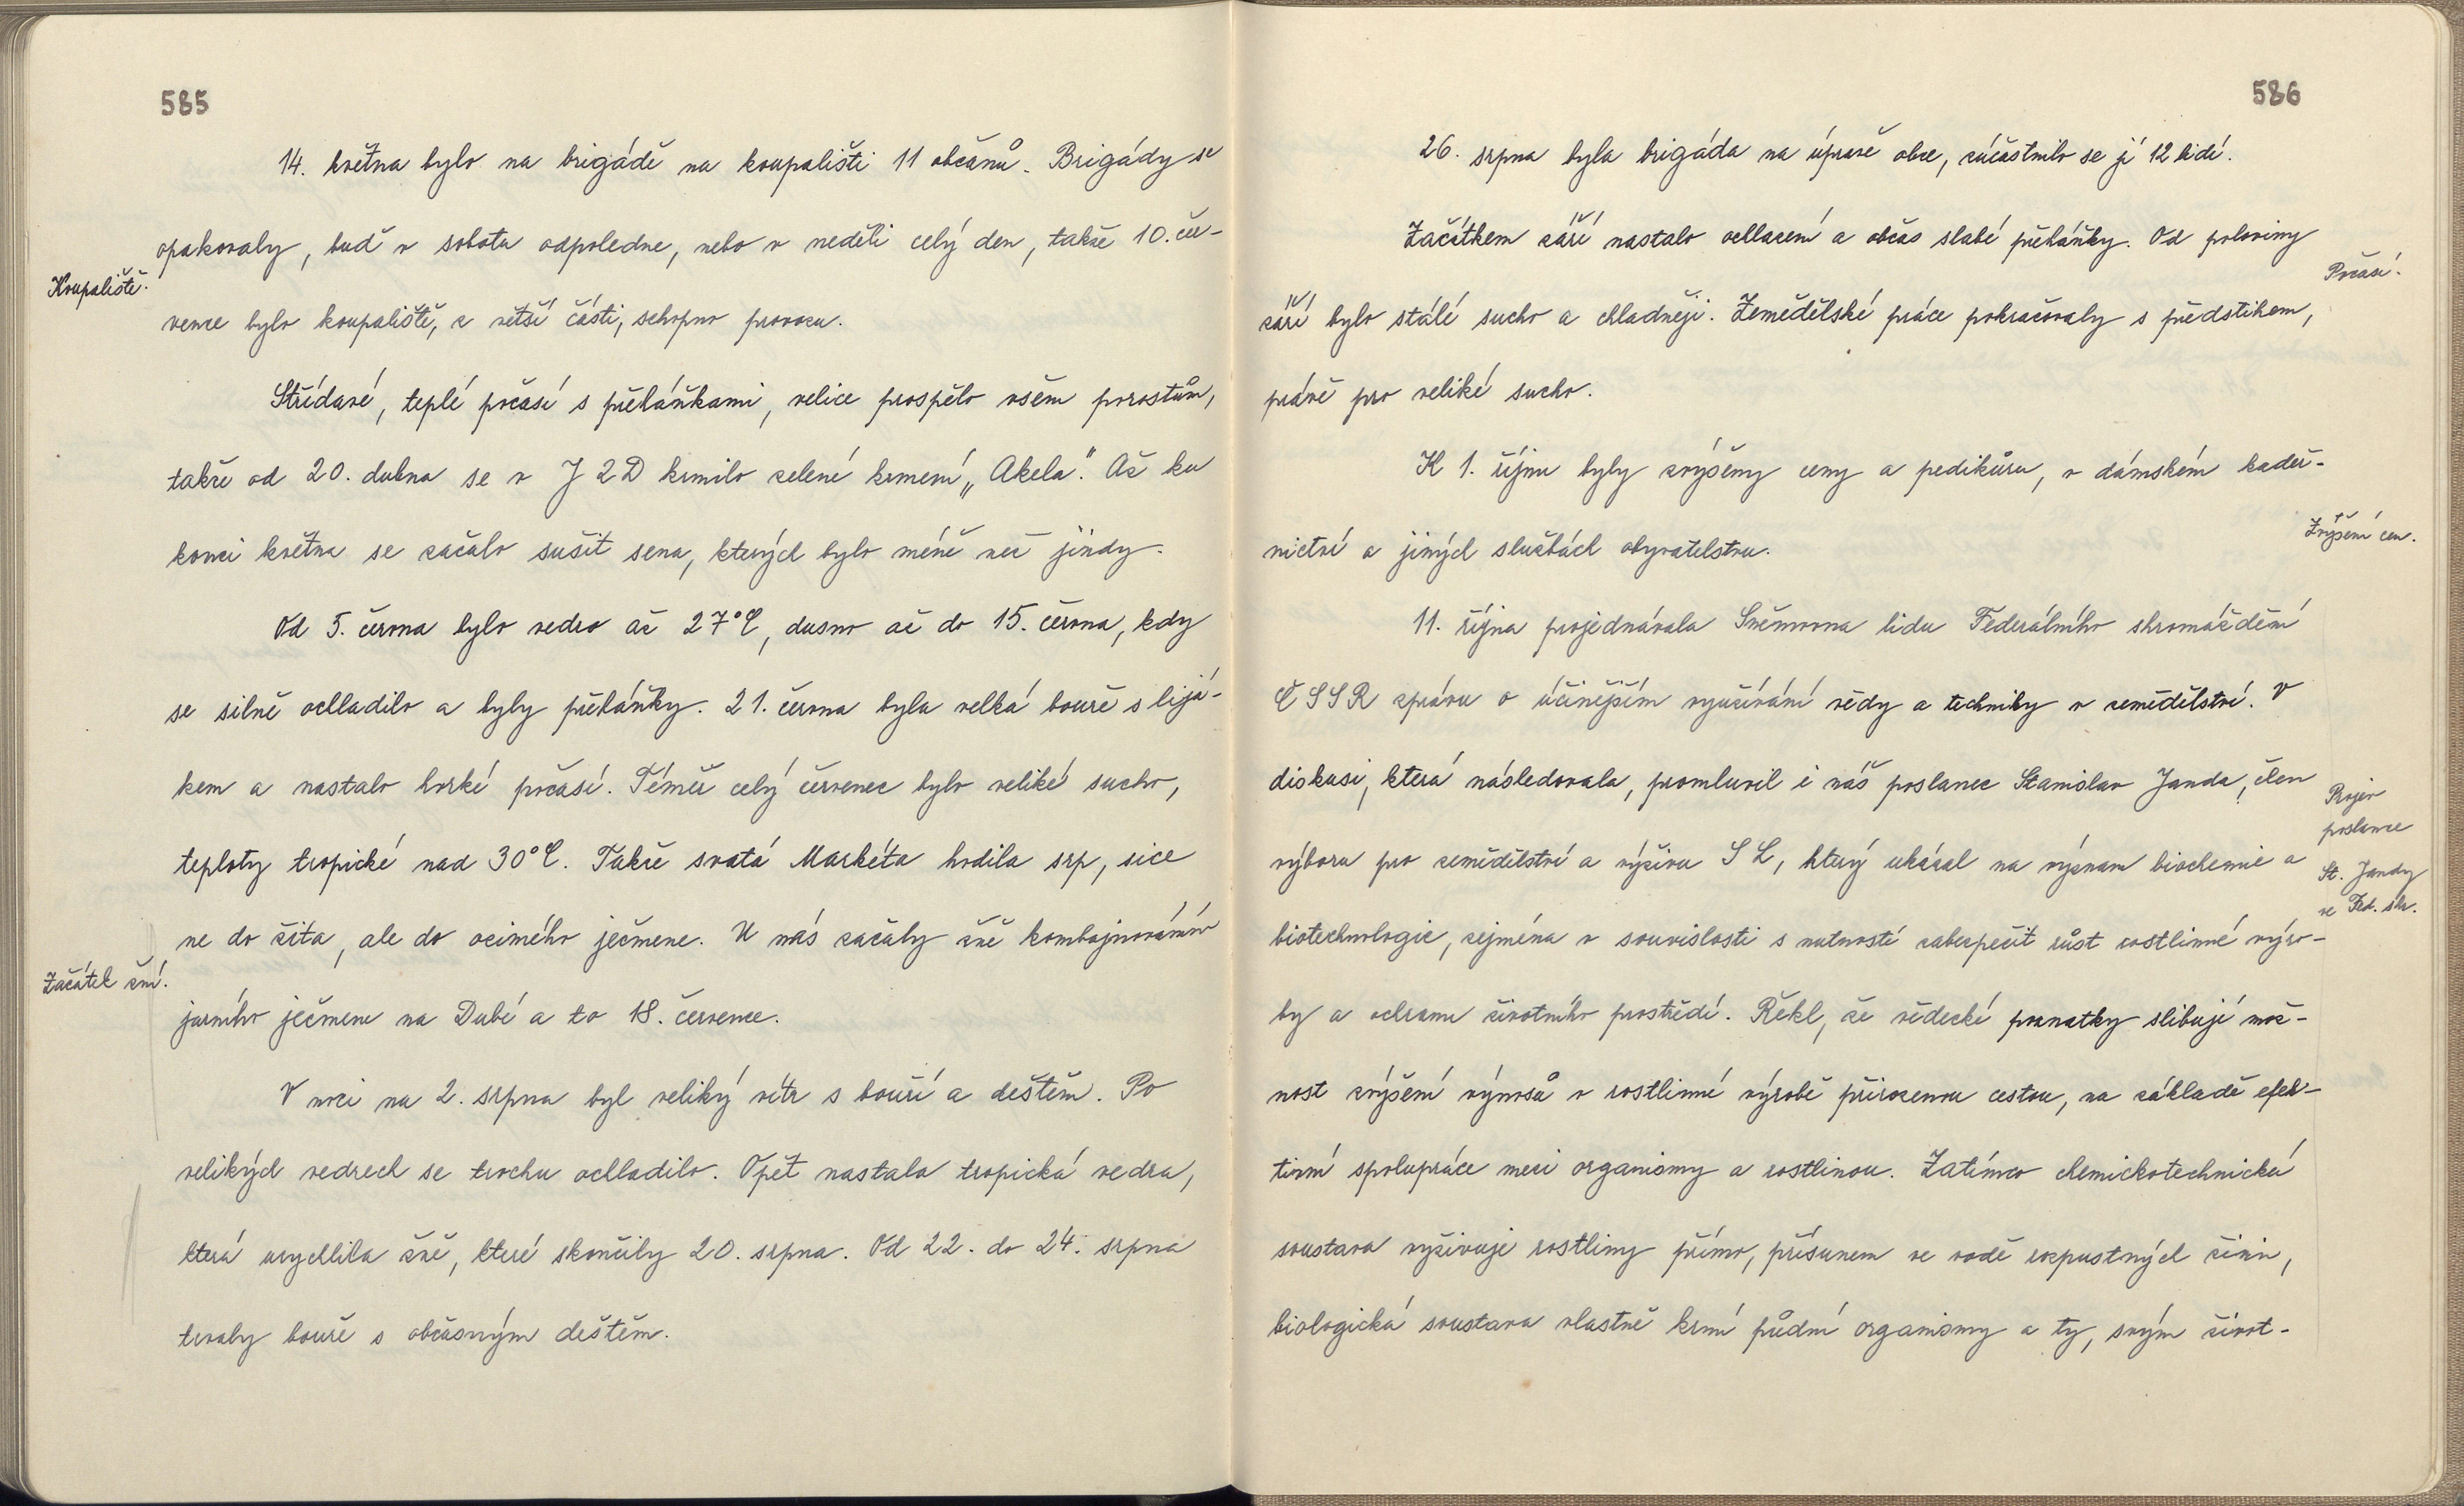 585
14. května bylo na brigádě na koupališti 11 občanů. Brigády se
opakovaly, buď v sobotu odpoledne, nebo v neděli celý den, takže 10. čer-
Koupaliště.
vence bylo koupaliště, z větší části, schopno provozu.
Střídavé, teplé počasí s přeháňkami, velice prospělo všem porostům,
takže od 20. dubna se v JZD krmilo zelené krmení „Akela". Až ku
konci května se začalo sušit sena, kterých bylo méně než jindy.
Od 5. června bylo vedro až 27°C, dusno až do 15. června, kdy
se silně ochladilo a byly přeháňky. 21. června byla velká bouře s lijá-
kem a nastalo horké počasí. Téměř celý červenec bylo veliké sucho,
teploty tropické nad 30°C. Takže svatá Markéta hodila srp, sice
ne do žita, ale do ozimého ječmene. U nás začaly žně kombajnováním
Začátek žní.
jarního ječmene na Dubé a to 18. července.
V noci na 2. srpna byl veliký vítr s bouří a deštěm. Po
velikých vedrech se trochu ochladilo. Opět nastala tropická vedra,
která urychlila žně, které skončily 20. srpna. Od 22. do 24. srpna
trvaly bouře s občasným deštěm.
586
26. srpna byla brigáda na úpravě obce, zúčastnilo se jí 12 lidí.
Začátkem září nastalo ochlazení a občas slabé přeháňky. Od poloviny
Počasí.
září bylo stálé sucho a chladněji. Zemědělské práce pokračovaly s předstihem,
právě pro veliké sucho.
K 1. říjnu byly zvýšeny ceny a pedikůru, v dámském kadeř-
Zvýšení cen.
nictví a jiných službách obyvatelstvu.
11. října projednávala Sněmovna lidu Federálního shromáždění
ČSSR zprávu o účinějším využívání vědy a techniky v zemědělství. V
diskusi, která následovala, promluvil i náš poslanec Stanislav Janda, člen
Projev
poslance
výboru pro zemědělství a výživu SL, který ukázal na význam biochemie a
St. Jandy
ve Fed. shr.
biotechnologie, zejména v souvislosti s nutností zabezpečit růst rostlinné výro-
by a ochranu životního prostředí. Řekl, že vědecké poznatky slibují mož-
nost zvýšení výnosů v rostlinné výrobě přirozenou cestou, na základě efek-
tivní spolupráce mezi organismy a rostlinou. Zatímco chemickotechnická
soustava vyživuje rostliny přímo, přísunem ve vodě rozpustných živin,
biologická soustava vlastně krmí půdní organismy a ty, svým život-